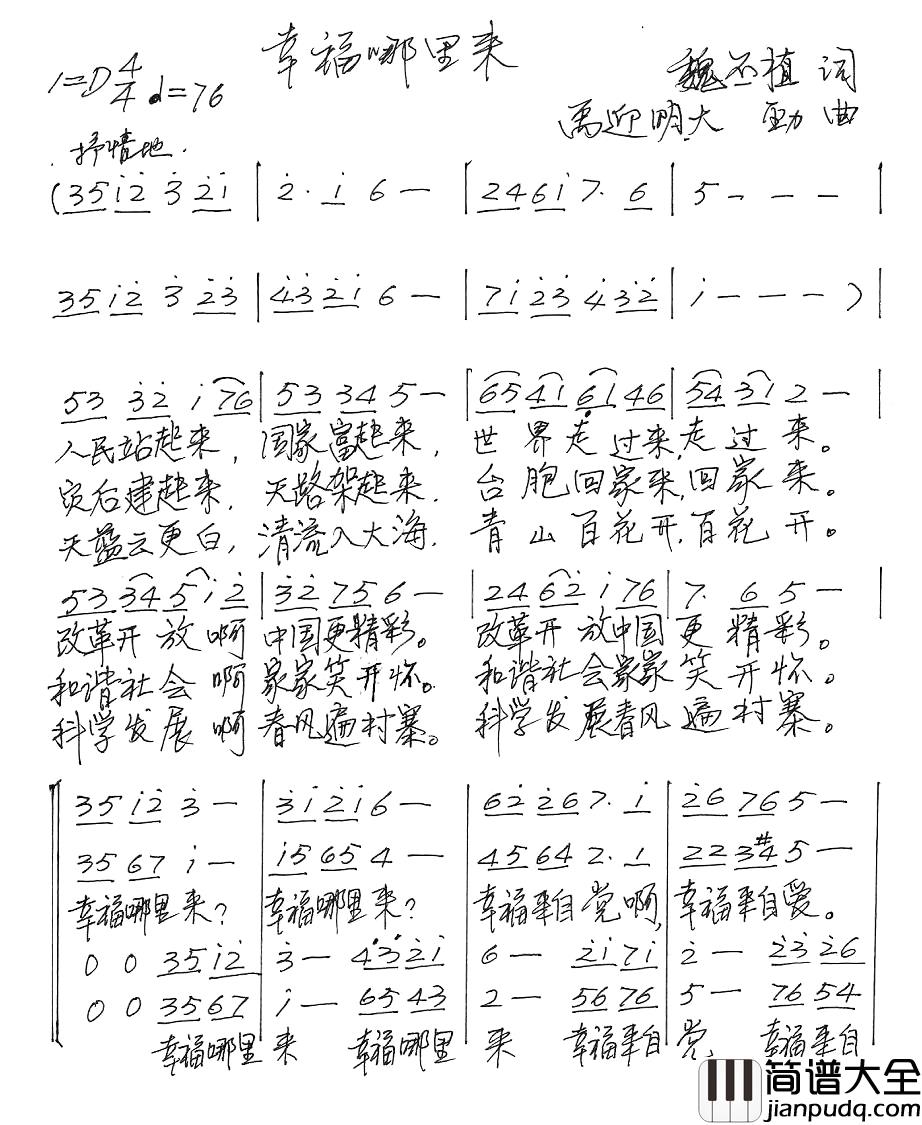 幸福哪里来
1=D 4/4 ♩=76
魏丕植 词
禹迎明 大勐 曲
抒情地
(35 i̇2̇ 3̇ 2̇i̇ | 2̇. i̇ 6 — | 246i̇ 7. 6 | 5 — — — |
35 i̇2̇ 3̇ 2̇3̇ | 4̇3̇ 2̇i̇ 6 — | 7i̇ 2̇3̇ 4̇ 3̇2̇ | i̇ — — — ) |
53 3̇2̇ i̇ 76 | 53 34 5 — | 65 41 61 46 | 54 31 2 — |
人民站起来, 国家富起来, 世界走过来,走过来。
灾后建起来, 天路架起来, 台胞回家来,回家来。
天蓝云更白, 清流入大海, 青山百花开,百花开。
53 34 5 i̇ 2̇ | 3̇2̇ 75 6 — | 24 62̇ i̇ 76 | 7. 6 5 — |
改革开放啊 中国更精彩。 改革开放中国更精彩。
和谐社会啊 家家笑开怀。 和谐社会家家笑开怀。
科学发展啊 春风遍村寨。 科学发展春风遍村寨。
35 i̇2̇ 3̇ — | 3̇i̇ 2̇i̇ 6 — | 62̇ 2̇6 7. i̇ | 2̇6 76 5 — |
35 67 i̇ — | i̇5 65 4 — | 45 64 2. 1 | 22 3#4 5 — |
幸福哪里来? 幸福哪里来? 幸福来自党啊, 幸福来自爱。
0 0 35 i̇2̇ | 3̇ — 4̇3̇ 2̇i̇ | 6 — 2̇i̇ 7i̇ | 2̇ — 2̇3̇ 2̇6
0 0 35 67 | i̇ — 65 43 | 2 — 56 76 | 5 — 76 54
幸福哪里来 幸福哪里来 幸福来自党, 幸福来自
简谱大全
jianpudq.com